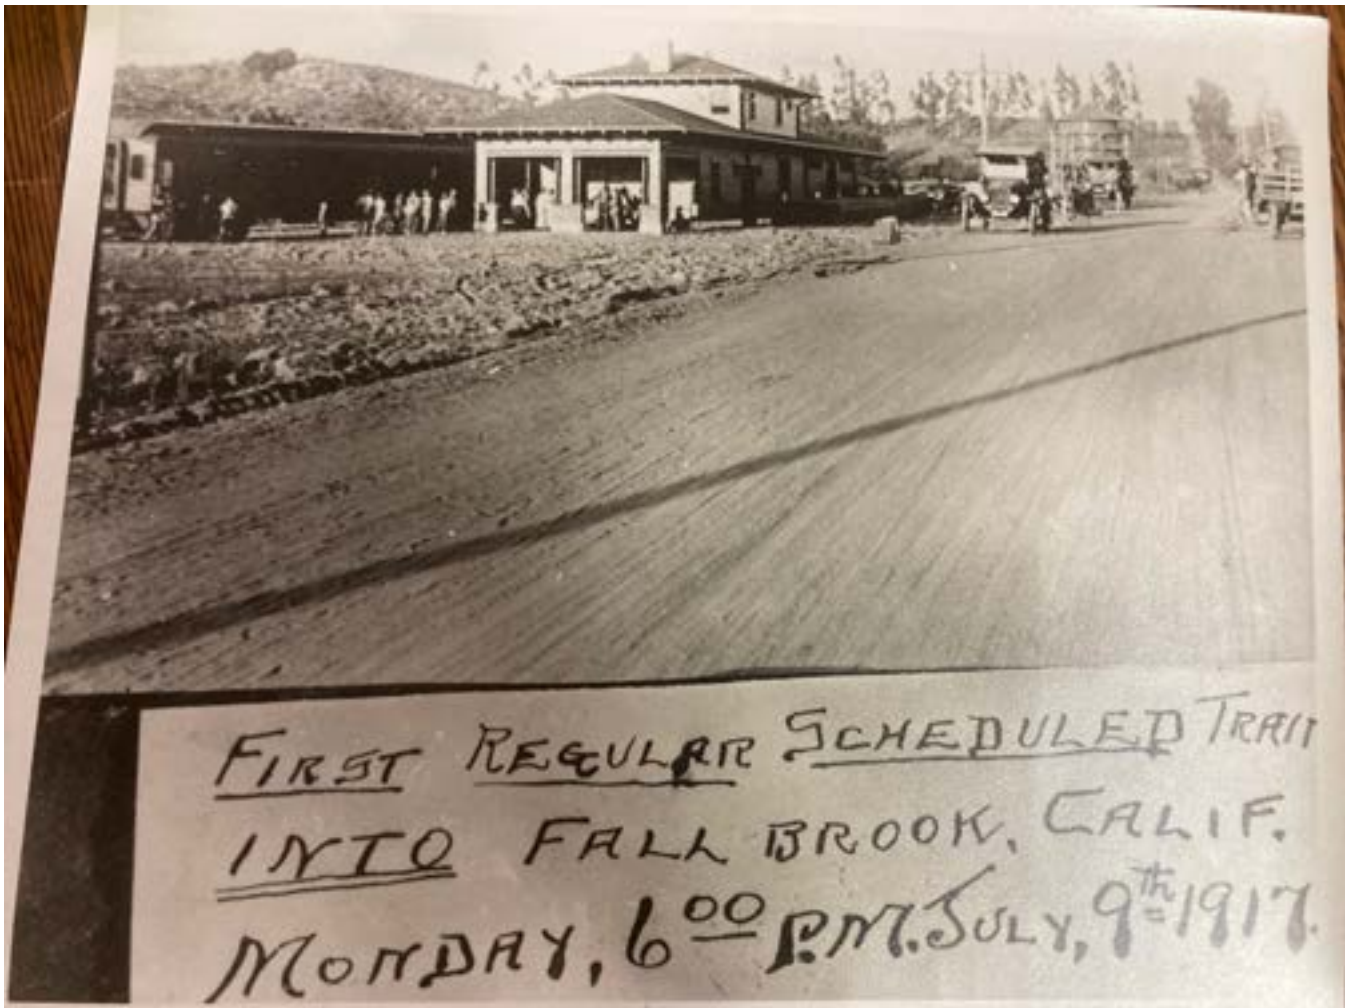 FIRST REGULAR SCHEDULED TRAIN
INTO FALL BROOK, CALIF.
MONDAY, 6 00 P.M. JULY, 9th 1917.